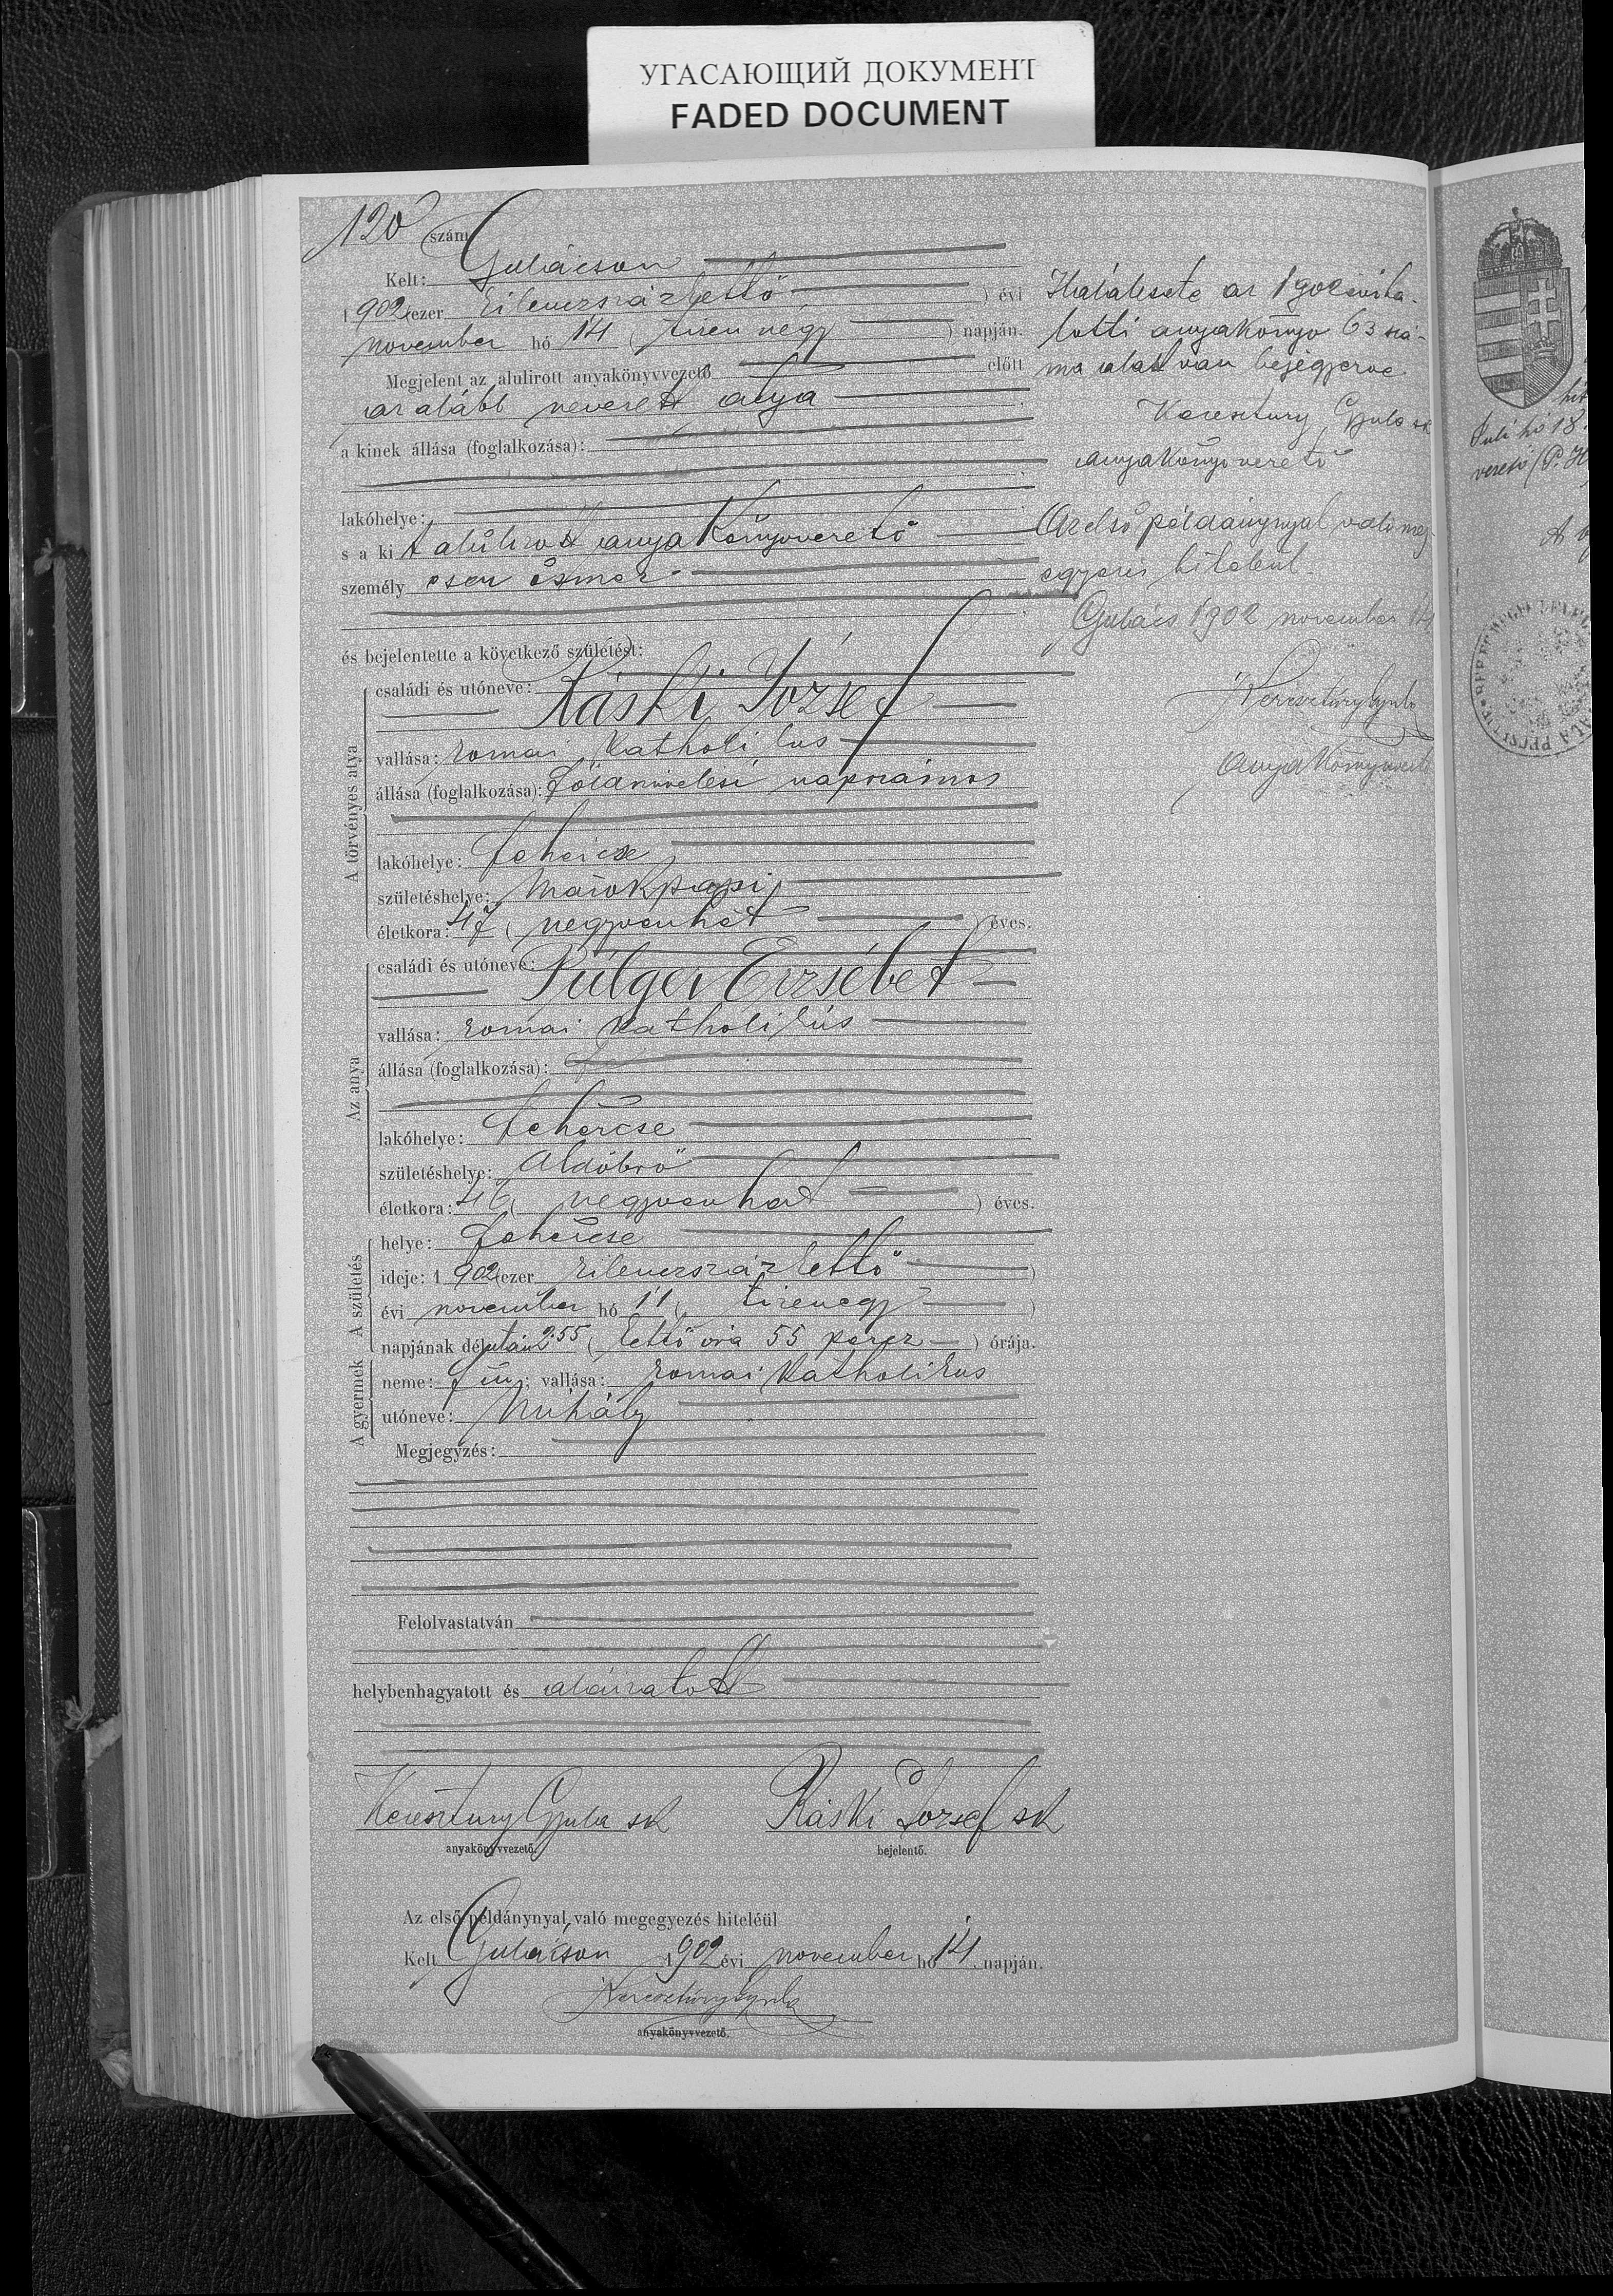 УГАСАЮЩИЙ ДОКУМЕНТ
FADED DOCUMENT
120 szám
Kelt: Gulácson
1902 ezer kilenczszázkettő ) évi
november hó 14 ( tizennégy ) napján.
Megjelent az alulirott anyakönyvvezető előtt
az alább nevezett atya
a kinek állása (foglalkozása):
lakóhelye:
s a kit alúlirott anyakönyvvezető
személyesen ösmer
és bejelentette a következő születést:
A törvényes atya
családi és utóneve:
Ráski József
vallása: romai katholikus
állása (foglalkozása): földmivelési napszámos
lakóhelye: Fehércse
születéshelye: Márokpapi
életkora: 47 ( negyvenhét ) éves.
Az anya
családi és utóneve:
Pülger Erzsébet
vallása: romai katholikús
állása (foglalkozása):
lakóhelye: Fehércse
születéshelye: Aldóbrö
életkora: 46 ( negyvenhat ) éves.
A születés
helye: Fehércse
ideje: 1902 ezer kilenczszázkettő )
évi november hó 11 ( tizenegy )
napjának délután 2.55 ( kettő óra 55 percz ) órája.
A gyermek
neme: fiú; vallása: romai katholikus
utóneve: Mihály
Megjegyzés:
Felolvastatván
helybenhagyatott és aláiratott
Keresztury Gyula sk
anyakönyvvezető.
Ráski József sk
bejelentő.
Az első példánynyal való megegyezés hiteléül
Kelt Gulácson 1902 évi november hó 14 napján.
Keresztúry Gyula
anyakönyvvezető.
Halálesete az 1902 évi ha-
lotti anyakönyv 63 szá-
ma alatt van bejegyezve
Keresztury Gyula sk
anyakönyvvezető
Az első példánynyal való meg-
egyezés hiteléül.
Gulács 1902 november 14
Keresztúry Gyula
anyakönyvvezető
Juli hó 18.
vezető (P. H.